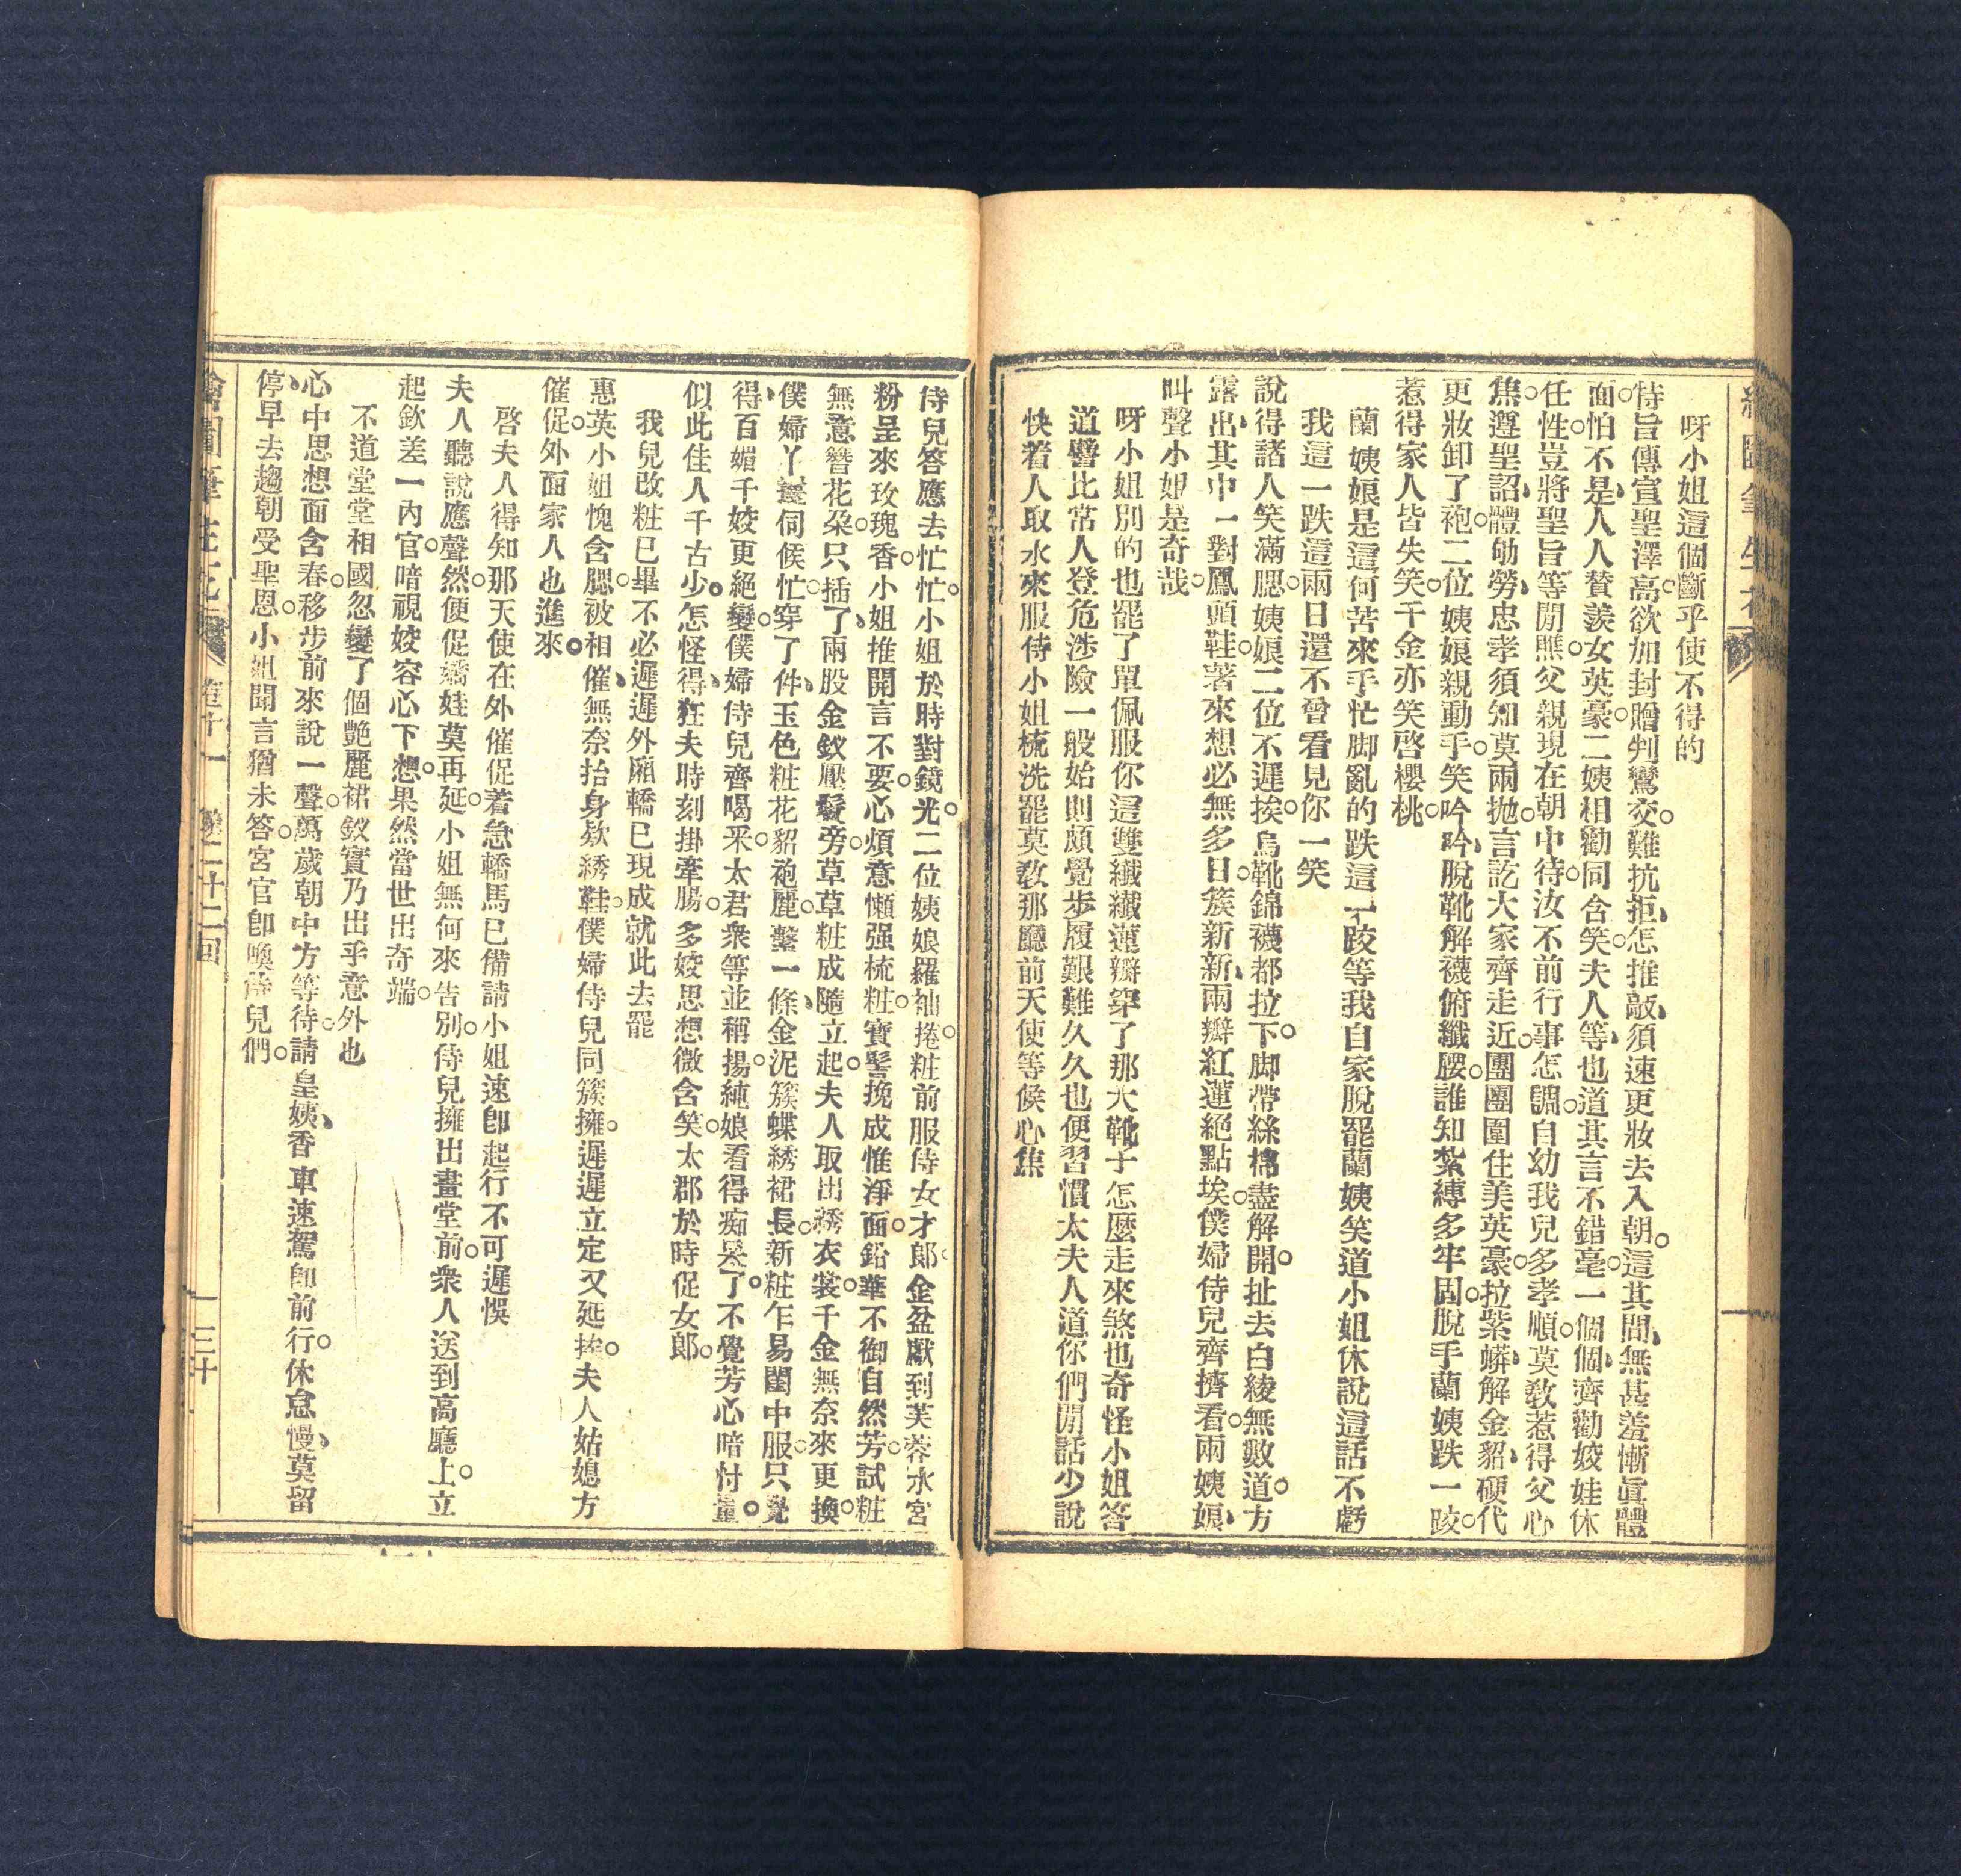 呀小姐這個斷乎使不得的
特旨傳宣聖澤高欲加封贈判鸞交難抗拒怎推敲須速更妝去入朝這其間無甚羞慚眞體
面怕不是人人贊羨女英豪二姨相勸同含笑夫人等也道其言不錯毫一個個齊勸姣娃休
任性豈將聖旨等閒瞧父親現在朝中待汝不前行事怎調自幼我兒多孝順莫敎惹得父心
焦遵聖詔體劬勞忠孝須知莫兩抛言訖大家齊走近團團圍住美英豪拉紫蟒解金貂硬代
更妝卸了袍二位姨娘親動手笑吟吟脫靴解襪俯纖腰誰知紮縛多牢固脫手蘭姨跌一跤
惹得家人皆失笑千金亦笑啓櫻桃
蘭姨娘是這何苦來手忙脚亂的跌這一跤等我自家脫罷蘭姨笑道小姐休說這話不虧
我這一跌這兩日還不曾看見你一笑
說得諸人笑滿腮姨娘二位不遲挨烏靴錦襪都拉下脚帶絲棉盡解開扯去白綾無數道方
露出其中一對鳳頭鞋著來想必無多日簇新新兩瓣紅蓮絕點埃僕婦侍兒齊擠看兩姨娘
叫聲小姐是奇哉
呀小姐別的也罷了單佩服你這雙纖纖蓮瓣穿了那大靴子怎麼走來煞也奇怪小姐答
道譬比常人登危涉險一般始則頗覺步履艱難久久也便習慣太夫人道你們閒話少說
快着人取水來服侍小姐梳洗罷莫敎那廳前天使等候心焦
侍兒答應去忙忙小姐於時對鏡光二位姨娘羅袖捲粧前服侍女才郞金盆獻到芙蓉水宮
粉呈來玫瑰香小姐推開言不要心煩意懶强梳粧寶髻挽成惟淨面鉛華不御自然芳試粧
無意簪花朶只插了兩股金釵壓鬢旁草草粧成隨立起夫人取出綉衣裳千金無奈來更換
僕婦丫鬟伺候忙穿了件玉色粧花貂袍麗繫一條金泥簇蝶綉裙長新粧乍易閨中服只覺
得百媚千姣更絕變僕婦侍兒齊喝采太君衆等並稱揚純娘看得痴呆了不覺芳心暗忖量
似此佳人千古少怎怪得狂夫時刻掛牽腸多姣思想微含笑太郡於時促女郞
我兒改粧已畢不必遲遲外廂轎已現成就此去罷
惠英小姐愧含腮被相催無奈抬身欵綉鞋僕婦侍兒同簇擁遲遲立定又延挨夫人姑媳方
催促外面家人也進來
啓夫人得知那天使在外催促着急轎馬已備請小姐速卽起行不可遲悞
夫人聽說應聲然便促嬌娃莫再延小姐無何來告別侍兒擁出畫堂前衆人送到高廳上立
起欽差一內官暗視姣容心下想果然當世出奇端
不道堂堂相國忽變了個艶麗裙釵實乃出乎意外也
心中思想面含春移步前來說一聲萬歲朝中方等待請皇姨香車速駕卽前行休怠慢莫留
停早去趨朝受聖恩小姐聞言猶未答宮官卽喚侍兒們
繪圖筆生花 卷十一 第二十二回 三十